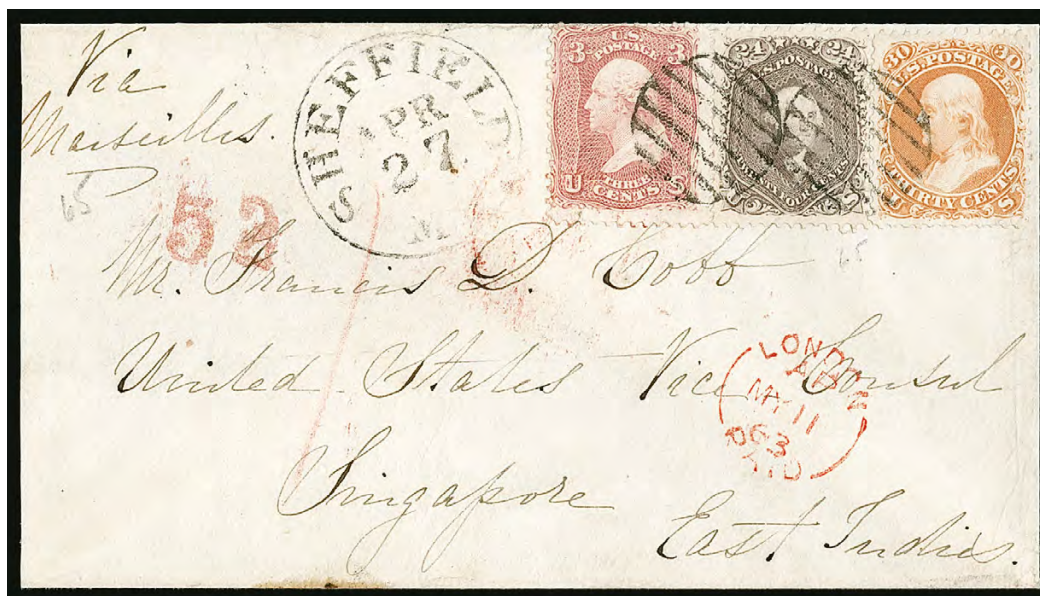 Via
Marseilles.
65
SHEFFIELD
APR
27
M
3 U.S. POSTAGE 3
THREE
U CENTS S
24 24
U.S. POSTAGE
U S
30 30
U.S. POSTAGE
THIRTY CENTS
U S
52
65
Mr. Francis D. Cobb
United States Vice Consul
Singapore
East Indies.
LONDON
MY 11
63
PAID